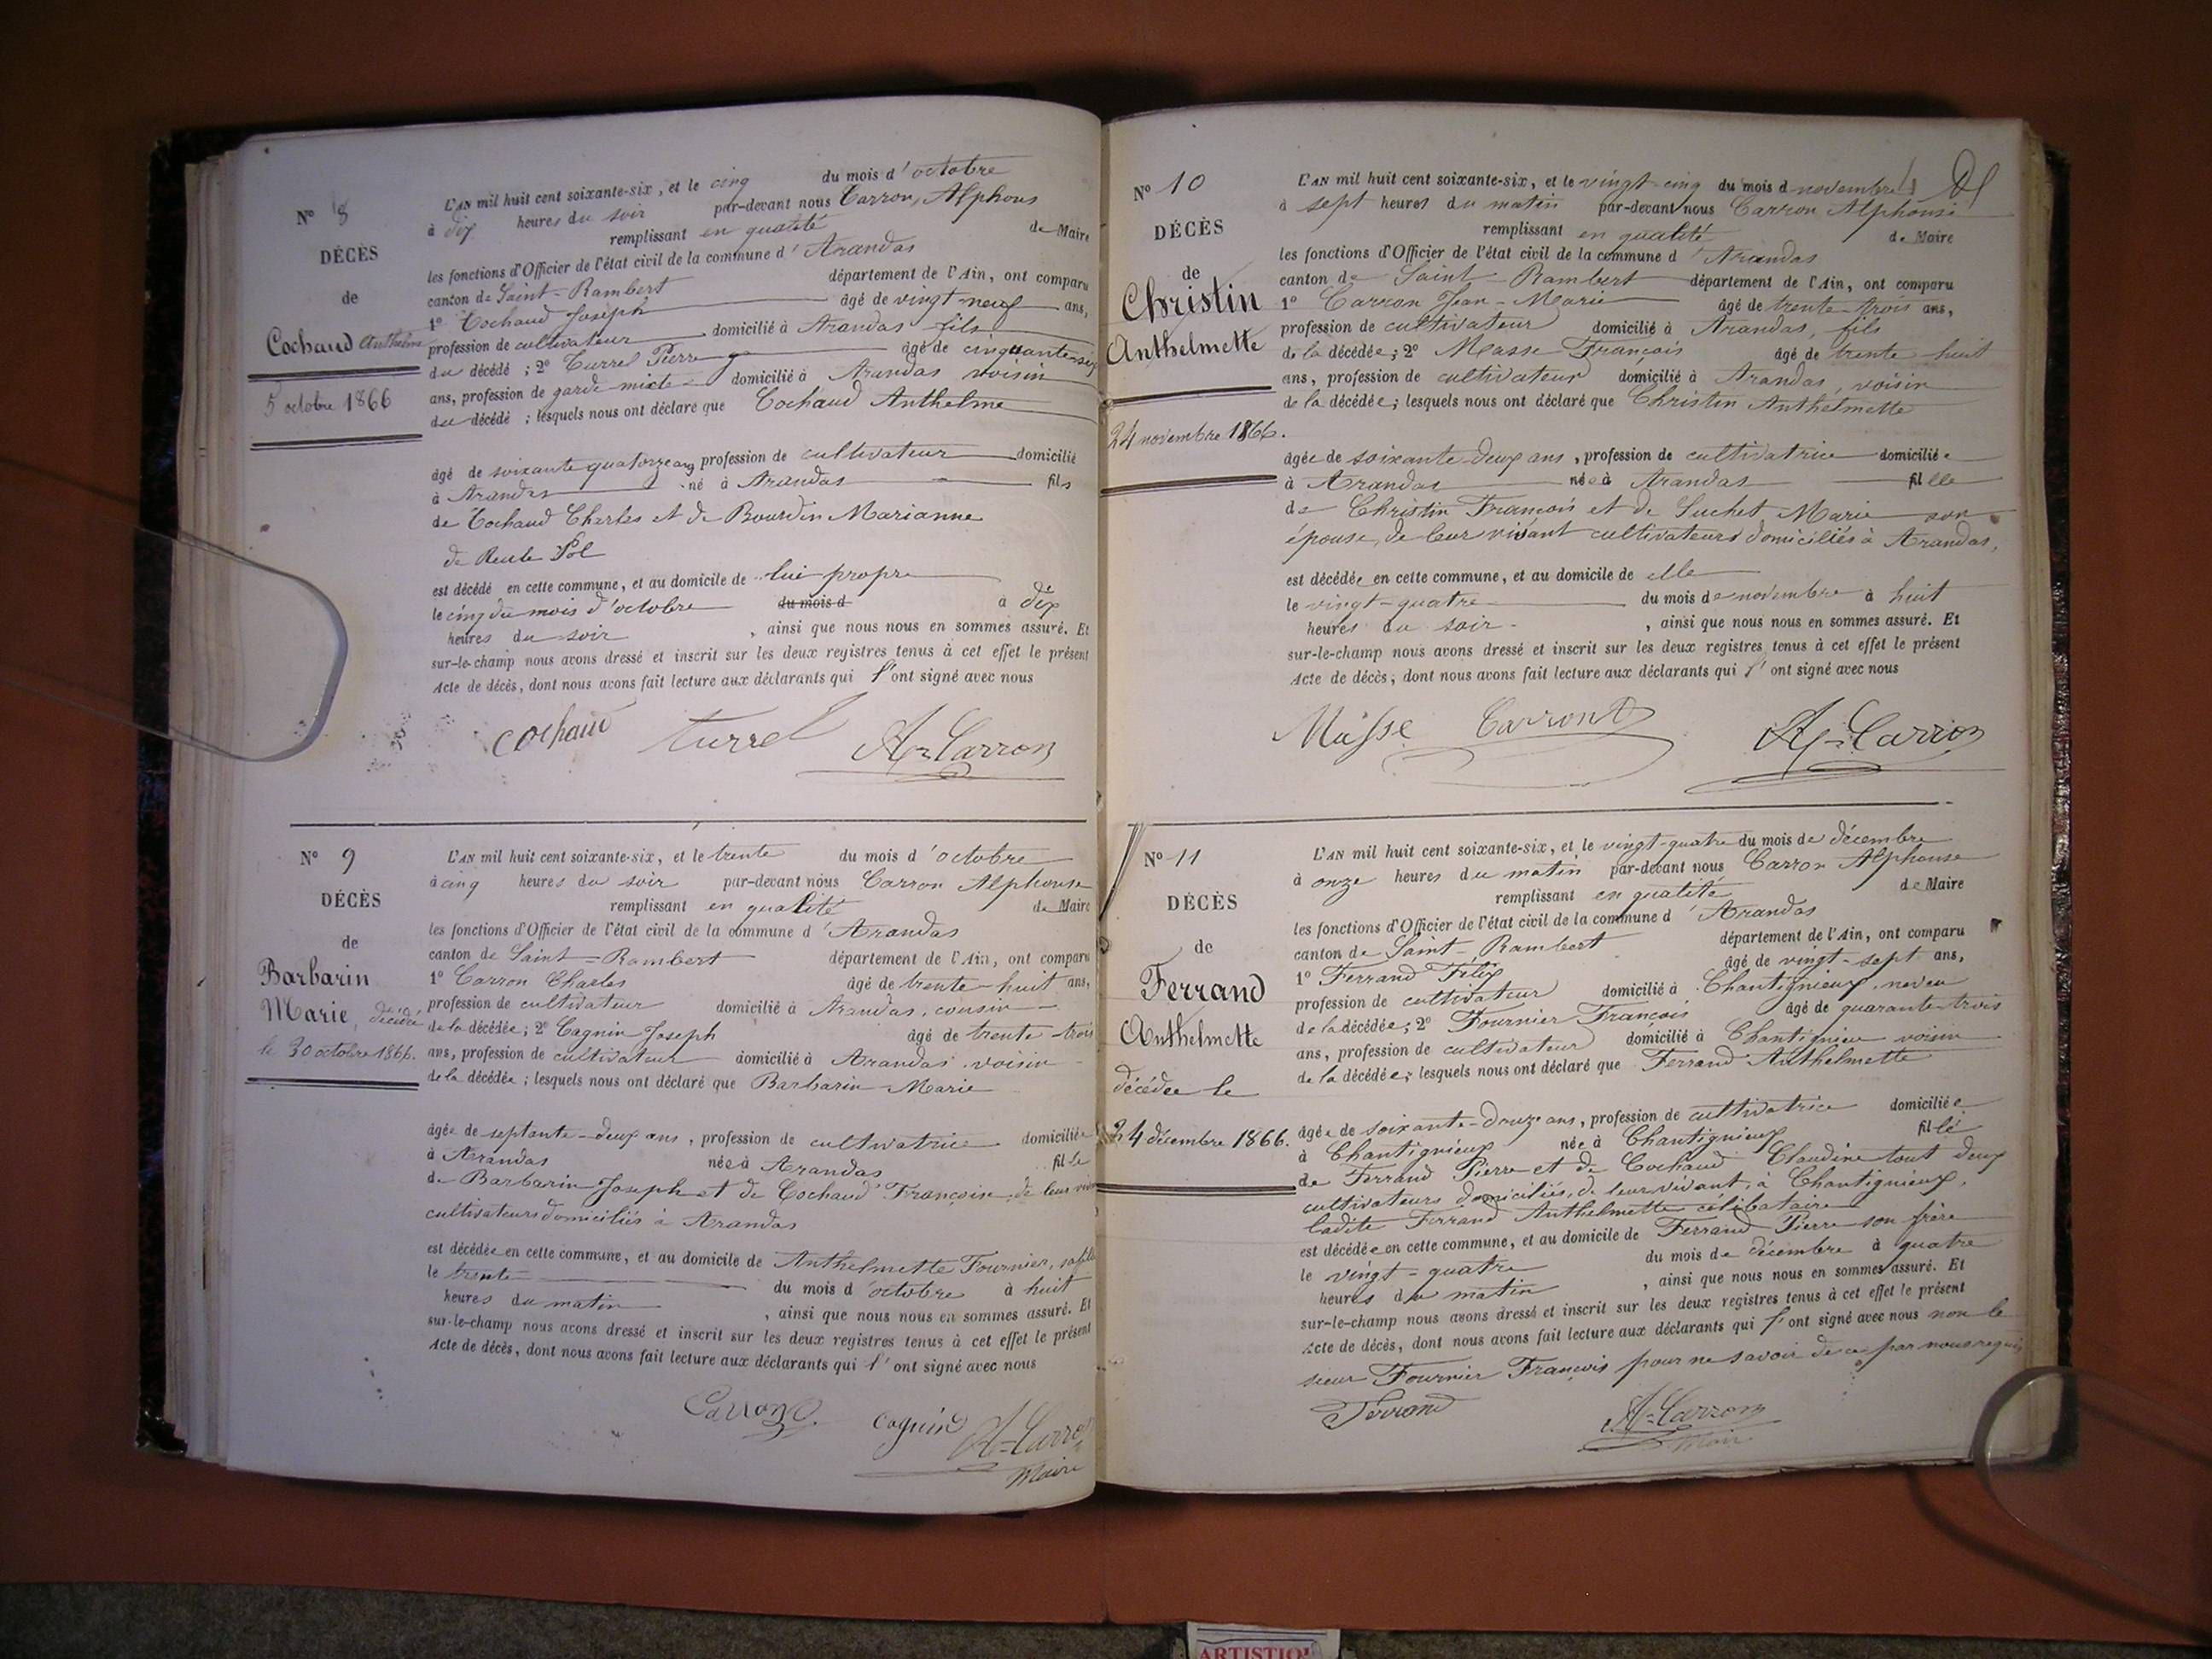 N° 8
DÉCÈS
de
Cochaud Anthelme
5 octobre 1866
L'AN mil huit cent soixante-six, et le cinq du mois d'octobre
à dix heures du soir par-devant nous Carron, Alphons
remplissant en qualité de Maire
les fonctions d'Officier de l'état civil de la commune d'Arandas
canton de Saint-Rambert département de l'Ain, ont comparu
1° Cochaud Joseph âgé de vingt neuf ans,
profession de cultivateur domicilié à Arandas fils
du décédé ; 2° Turrel Pierre âgé de cinquante-six
ans, profession de garde mixte domicilié à Arandas voisin
du décédé ; lesquels nous ont déclaré que Cochaud Anthelme
âgé de soixante quatorze ans profession de cultivateur domicilié
à Arandas né à Arandas fils
de Cochaud Charles et de Bourdin Marianne
de
est décédé en cette commune, et au domicile de lui propre
le cinq du mois d'octobre du mois d à dix
heures du soir , ainsi que nous nous en sommes assuré. Et
sur-le-champ nous avons dressé et inscrit sur les deux registres tenus à cet effet le présent
Acte de décès, dont nous avons fait lecture aux déclarants qui l'ont signé avec nous
Cochaud Turrel A-Carron
N° 9
DÉCÈS
de
Barbarin
Marie, décédée
le 30 octobre 1866.
L'AN mil huit cent soixante-six, et le trente du mois d'octobre
à cinq heures du soir par-devant nous Carron Alphonse
remplissant en qualité de Maire
les fonctions d'Officier de l'état civil de la commune d'Arandas
canton de Saint-Rambert département de l'Ain, ont comparu
1° Carron Charles âgé de trente-huit ans,
profession de cultivateur domicilié à Arandas, cousin
de la décédée ; 2° Cagnin Joseph âgé de trente-trois
ans, profession de cultivateur domicilié à Arandas voisin
de la décédée ; lesquels nous ont déclaré que Barbarin Marie
âgée de septante-deux ans, profession de cultivatrice domiciliée
à Arandas née à Arandas fille
de Barbarin Joseph et de Cochaud Françoise, de leur
cultivateurs domiciliés à Arandas
est décédée en cette commune, et au domicile de Anthelmette Fournier, sa fille
le trente du mois d'octobre à huit
heures du matin , ainsi que nous nous en sommes assuré. Et
sur-le-champ nous avons dressé et inscrit sur les deux registres tenus à cet effet le présent
Acte de décès, dont nous avons fait lecture aux déclarants qui l'ont signé avec nous
Carron Cagnin A-Carron
Maire
N° 10
DÉCÈS
de
Christin
Anthelmette
24 novembre 1866.
L'AN mil huit cent soixante-six, et le vingt-cinq du mois de novembre
à sept heures du matin par-devant nous Carron Alphonse
remplissant en qualité de Maire
les fonctions d'Officier de l'état civil de la commune d'Arandas
canton de Saint-Rambert département de l'Ain, ont comparu
1° Carron Jean-Marie âgé de trente-trois ans,
profession de cultivateur domicilié à Arandas, fils
de la décédée ; 2° Masse François âgé de trente huit
ans, profession de cultivateur domicilié à Arandas, voisin
de la décédée ; lesquels nous ont déclaré que Christin Anthelmette
âgée de soixante-deux ans, profession de cultivatrice domiciliée
à Arandas née à Arandas fille
de Christin François et de Suchet Marie son
épouse, de leur vivant cultivateurs domiciliés à Arandas,
est décédée en cette commune, et au domicile de elle
le vingt-quatre du mois de novembre à huit
heures du soir , ainsi que nous nous en sommes assuré. Et
sur-le-champ nous avons dressé et inscrit sur les deux registres tenus à cet effet le présent
Acte de décès, dont nous avons fait lecture aux déclarants qui l'ont signé avec nous
Masse Carron A-Carron
N° 11
DÉCÈS
de
Ferrand
Anthelmette
décédée le
24 décembre 1866.
L'AN mil huit cent soixante-six, et le vingt-quatre du mois de décembre
à onze heures du matin par-devant nous Carron Alphonse
remplissant en qualité de Maire
les fonctions d'Officier de l'état civil de la commune d'Arandas
canton de Saint-Rambert département de l'Ain, ont comparu
1° Ferrand Félix âgé de vingt-sept ans,
profession de cultivateur domicilié à Chantignieux, neveu
de la décédée ; 2° Fournier François âgé de quarante-trois
ans, profession de cultivateur domicilié à Chantignieux voisin
de la décédée ; lesquels nous ont déclaré que Ferrand Anthelmette
âgée de soixante-douze ans, profession de cultivatrice domiciliée
à Chantignieux née à Chantignieux fille
de Ferrand Pierre et de Cochaud Claudine tout deux
cultivateurs domiciliés, de leur vivant, à Chantignieux,
ladite Ferrand Anthelmette célibataire
est décédée en cette commune, et au domicile de Ferrand Pierre son frère
le vingt-quatre du mois de décembre à quatre
heures du matin , ainsi que nous nous en sommes assuré. Et
sur-le-champ nous avons dressé et inscrit sur les deux registres tenus à cet effet le présent
Acte de décès, dont nous avons fait lecture aux déclarants qui l'ont signé avec nous non le
sieur Fournier François pour ne savoir de ce par nous requis
Ferrand A-Carron
Maire
ARTISTIQ